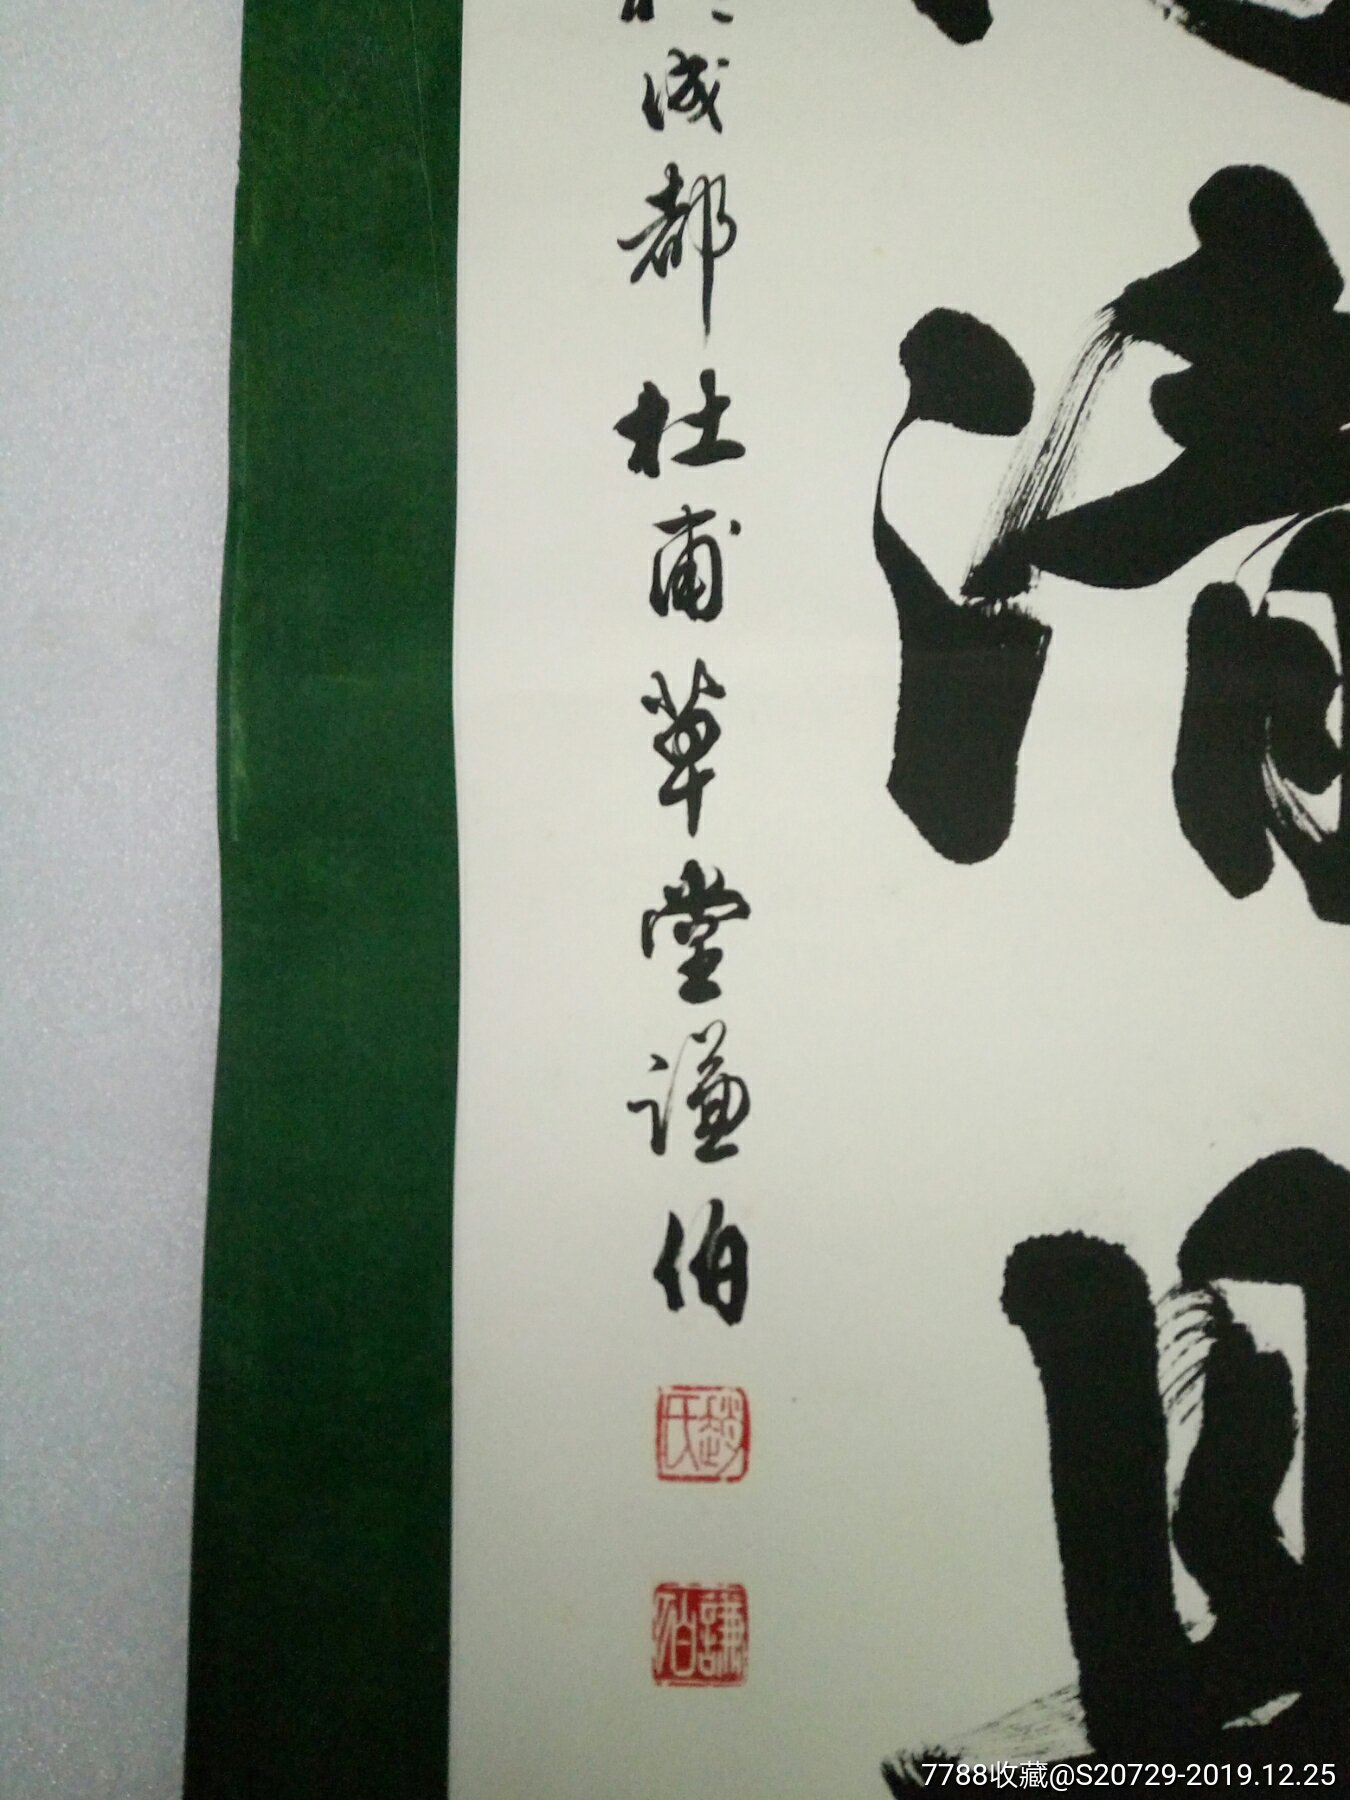 清
於成都杜甫草堂谦伯
趙氏
謙伯
7788收藏@S20729-2019.12.25